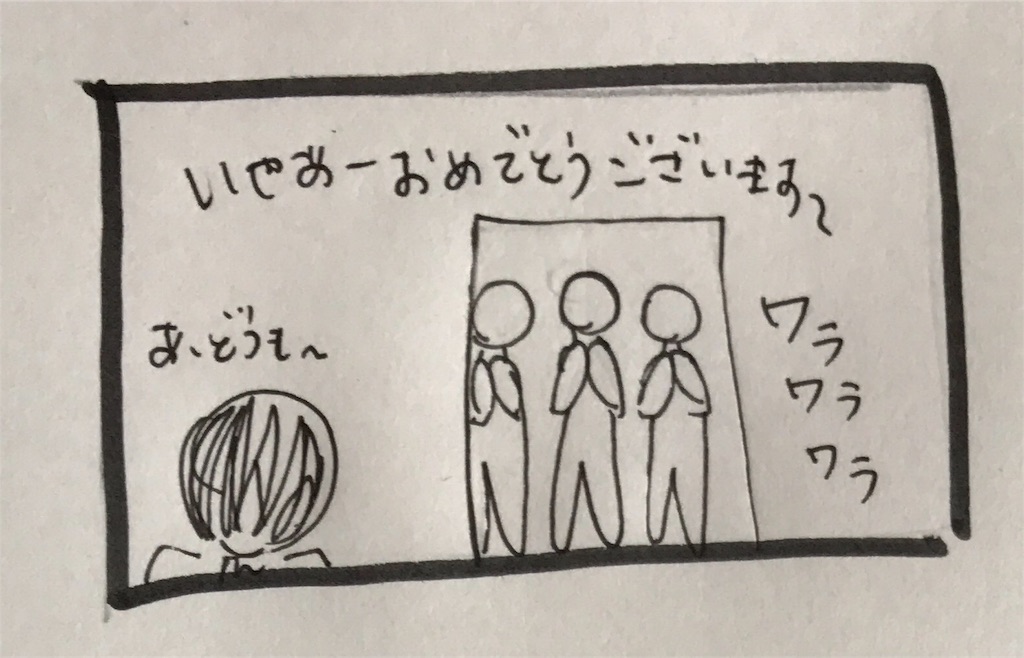 いやあーおめでとうございます〜
あ、どうも〜
ワラ
ワラ
ワラ